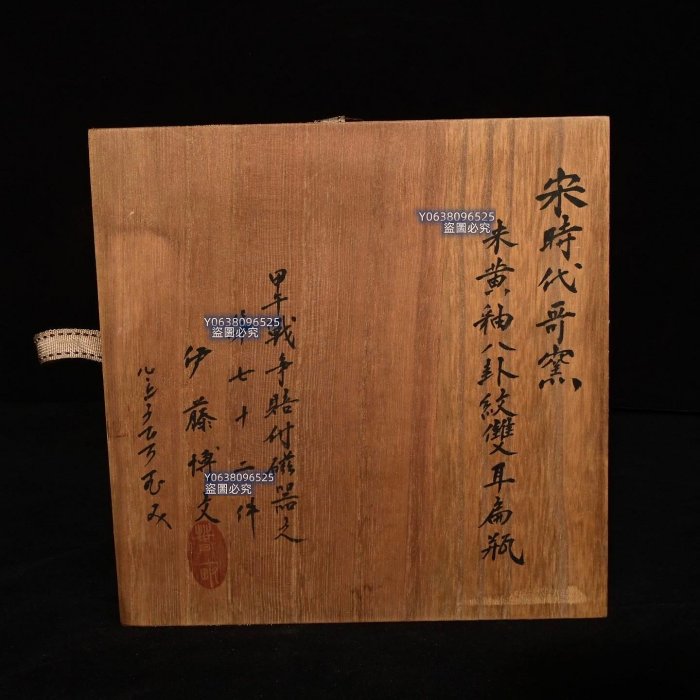 宋時代哥窯
米黄釉八卦紋雙耳扁瓶
甲午戦争賠付磁器之
七十二件
伊藤博文
Y0638096525
盜圖必究
Y0638096525
盜圖必究
Y0638096525
盜圖必究